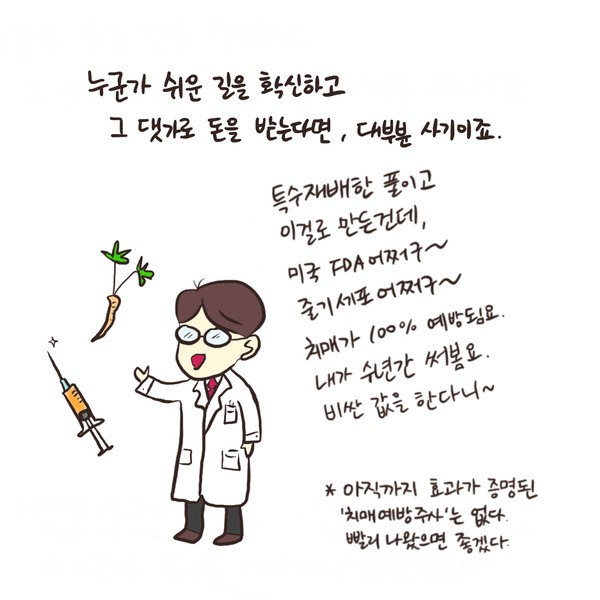 누군가 쉬운 길을 확신하고
그 댓가로 돈을 받는다면, 대부분 사기이죠.
특수재배한 풀이고
이걸로 만든건데,
미국 FDA 어쩌구~
줄기세포 어쩌구~
치매가 100% 예방되요.
내가 쉬년간 써봄요.
비싼 값을 한다니~
* 아직까지 효과가 증명된
'치매예방주사'는 없다.
빨리 나왔으면 좋겠다.